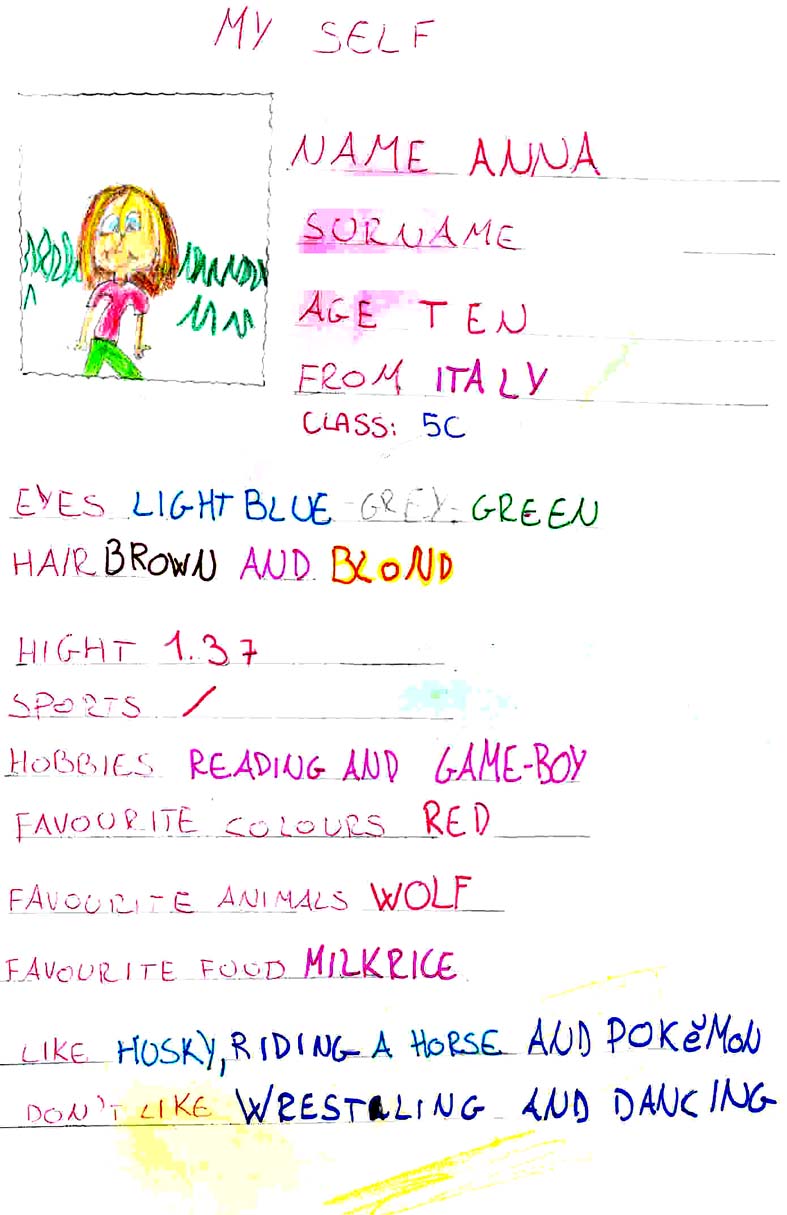 MY SELF
NAME ANNA
SURNAME
AGE TEN
FROM ITALY
CLASS: 5C
EYES LIGHT BLUE-GREY-GREEN
HAIR BROWN AND BLOND
HIGHT 1.37
SPORTS /
HOBBIES READING AND GAME-BOY
FAVOURITE COLOURS RED
FAVOURITE ANIMALS WOLF
FAVOURITE FOOD MILKRICE
LIKE HUSKY, RIDING A HORSE AND POKĕMON
DON'T LIKE WRESTLING AND DANCING